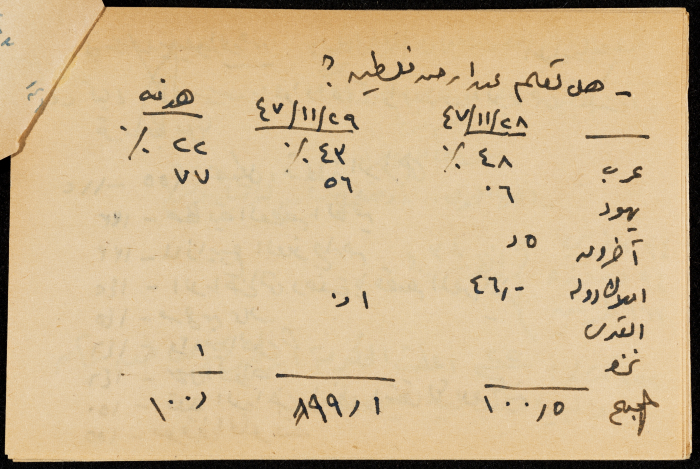 ـ هل تعلم عن ارض فلسطين ؟
٤٧/١١/٢٨ ٤٧/١١/٢٩ هدنه
عرب ٤٨ ٪ ٤٣ ٪ ٢٢ ٪
يهود ٠٦ ٥٦ ٧٧
آخرون ٥ر
املاك دوله ٤٦,-
القدس ١ر٠
غزه ١
الجميع ١٠٠٫٥ ٨٩٩٫١ ١٠٠٫